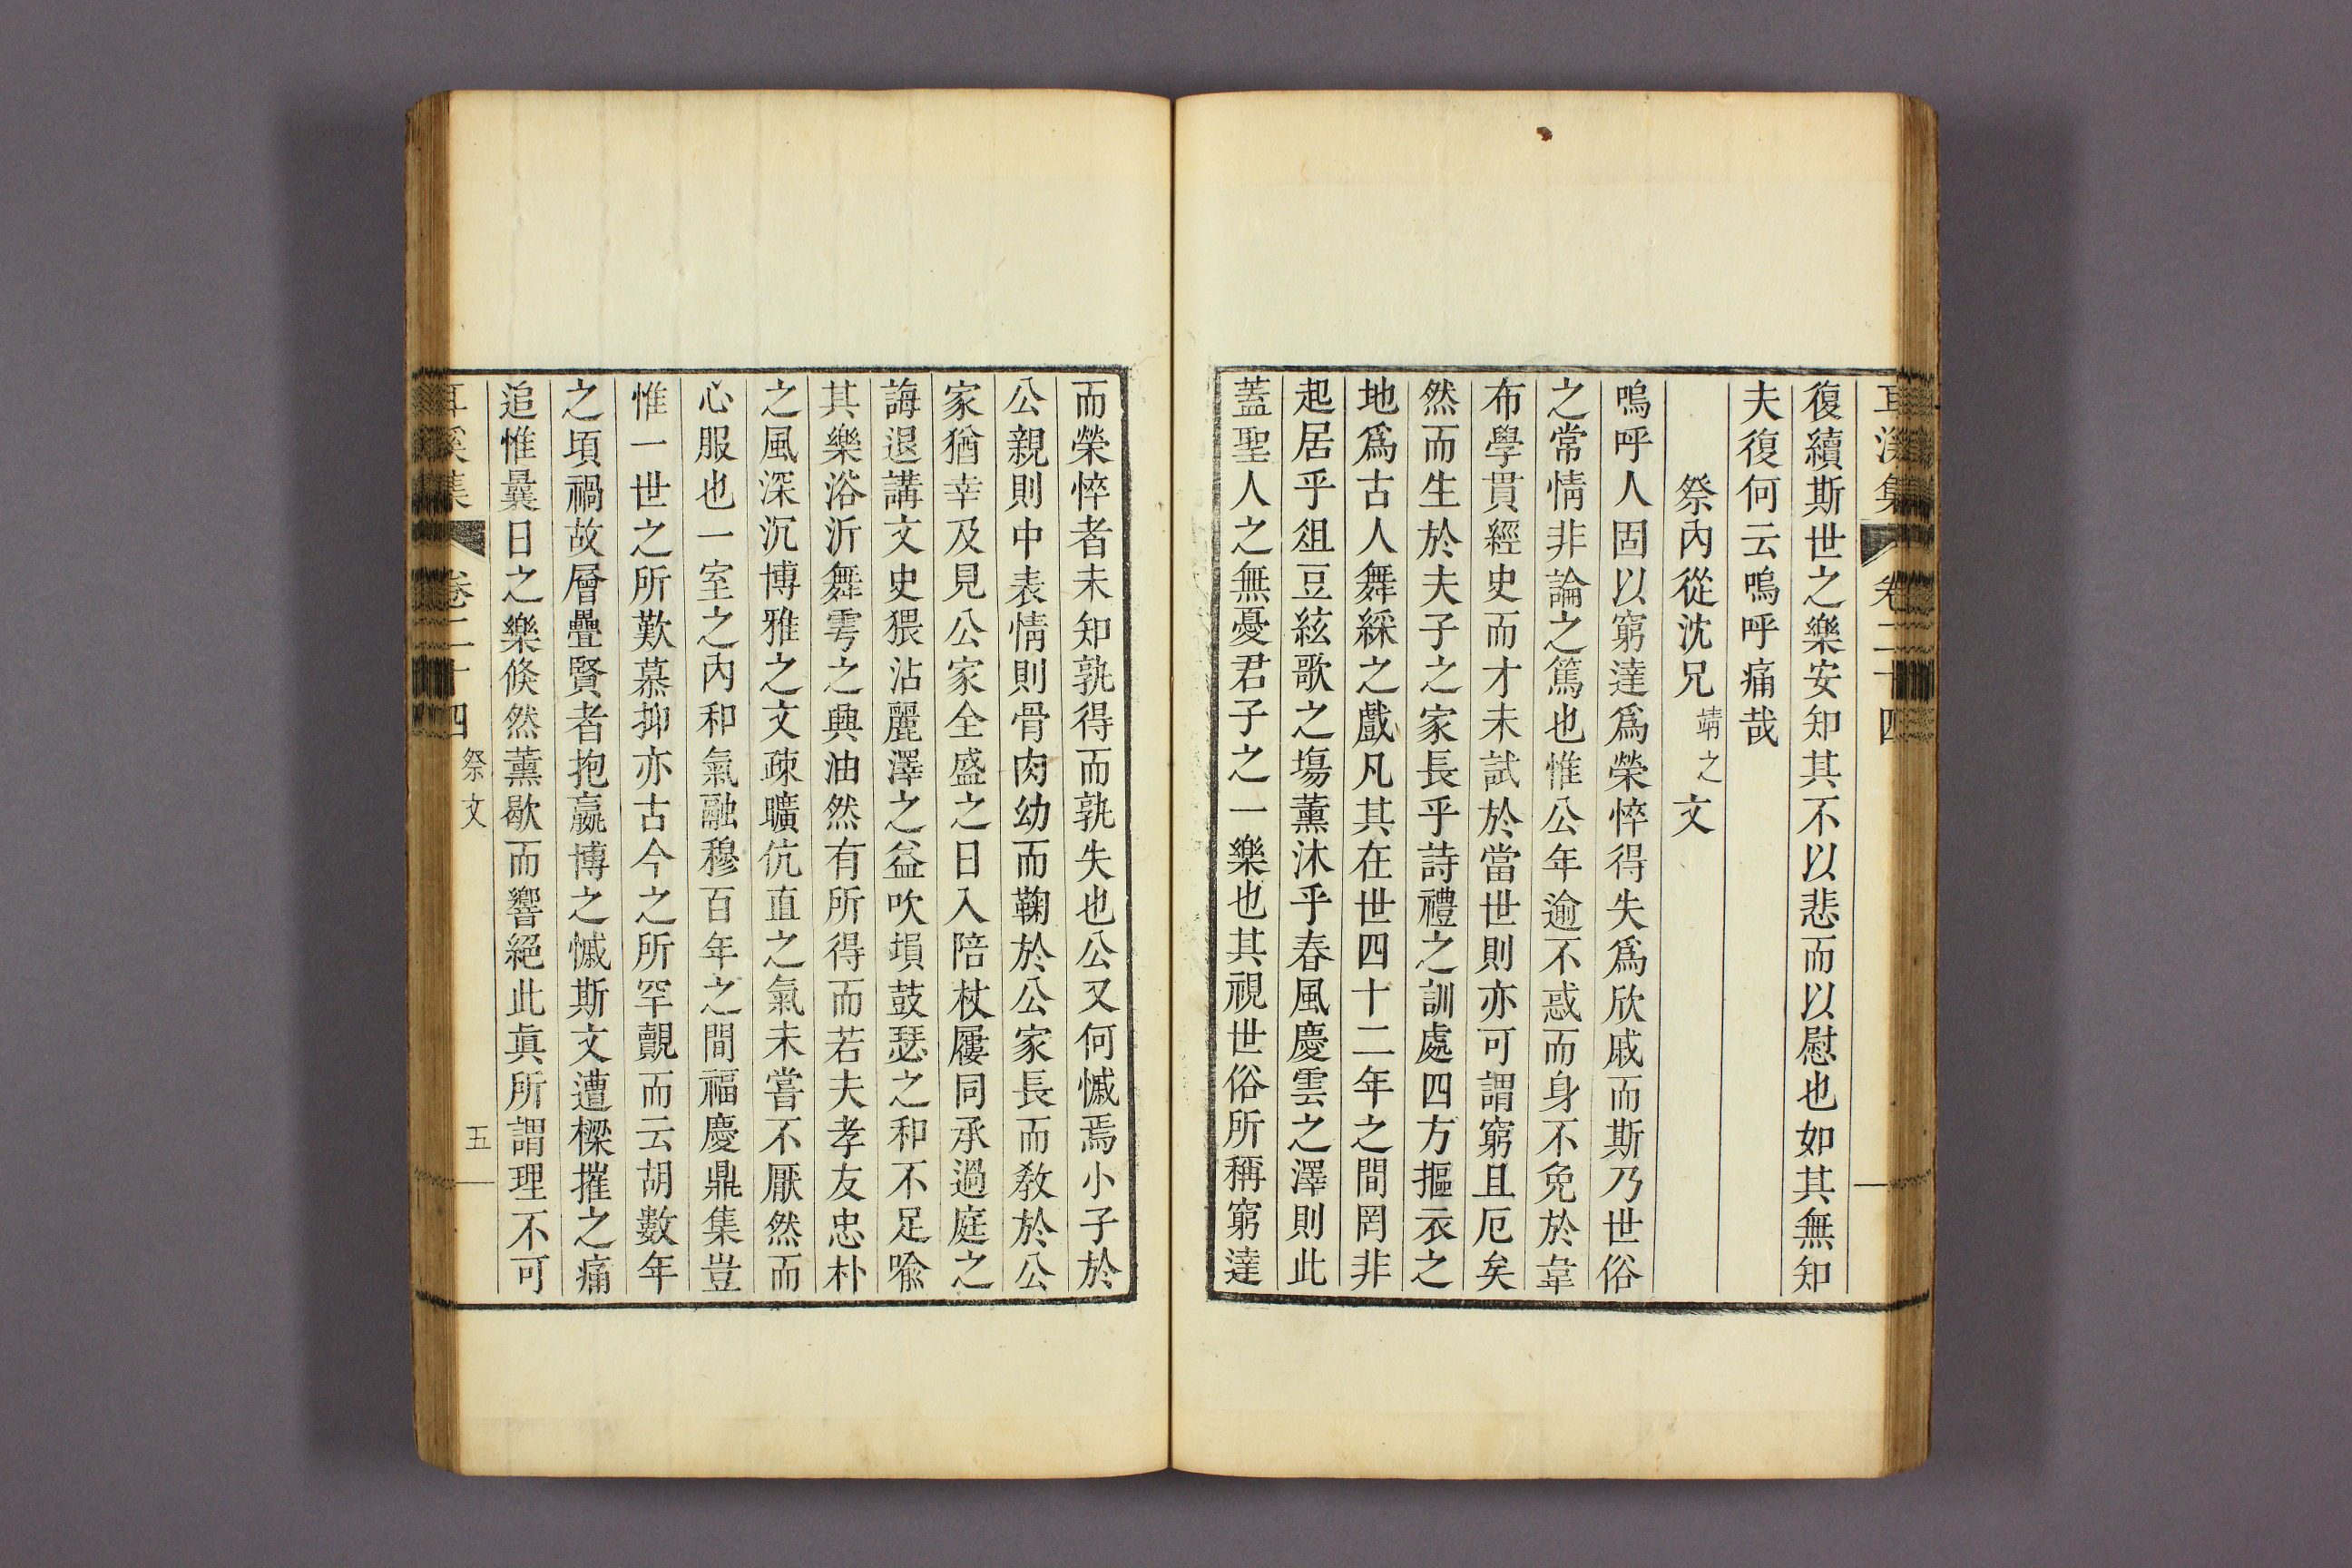 耳溪集 卷二十四
復續斯世之樂安知其不以悲而以慰也如其無知
夫復何云嗚呼痛哉
祭內從沈兄靖之文
嗚呼人固以窮達爲榮悴得失爲欣戚而斯乃世俗
之常情非論之篤也惟公年逾不惑而身不免於韋
布學貫經史而才未試於當世則亦可謂窮且厄矣
然而生於夫子之家長乎詩禮之訓處四方摳衣之
地爲古人舞綵之戲凡其在世四十二年之間罔非
起居乎俎豆絃歌之塲薰沐乎春風慶雲之澤則此
蓋聖人之無憂君子之一樂也其視世俗所稱窮達
而榮悴者未知孰得而孰失也公又何慽焉小子於
公親則中表情則骨肉幼而鞠於公家長而敎於公
家猶幸及見公家全盛之日入陪杖屨同承過庭之
誨退講文史猥沾麗澤之益吹塤鼓瑟之和不足喩
其樂浴沂舞雩之興油然有所得而若夫孝友忠朴
之風深沉博雅之文疎曠伉直之氣未嘗不厭然而
心服也一室之內和氣融穆百年之間福慶鼎集豈
惟一世之所歎慕抑亦古今之所罕覿而云胡數年
之頃禍故層疊賢者抱嬴博之慽斯文遭樑摧之痛
追惟曩日之樂倐然薰歇而響絕此眞所謂理不可
耳溪集 卷二十四 祭文 五